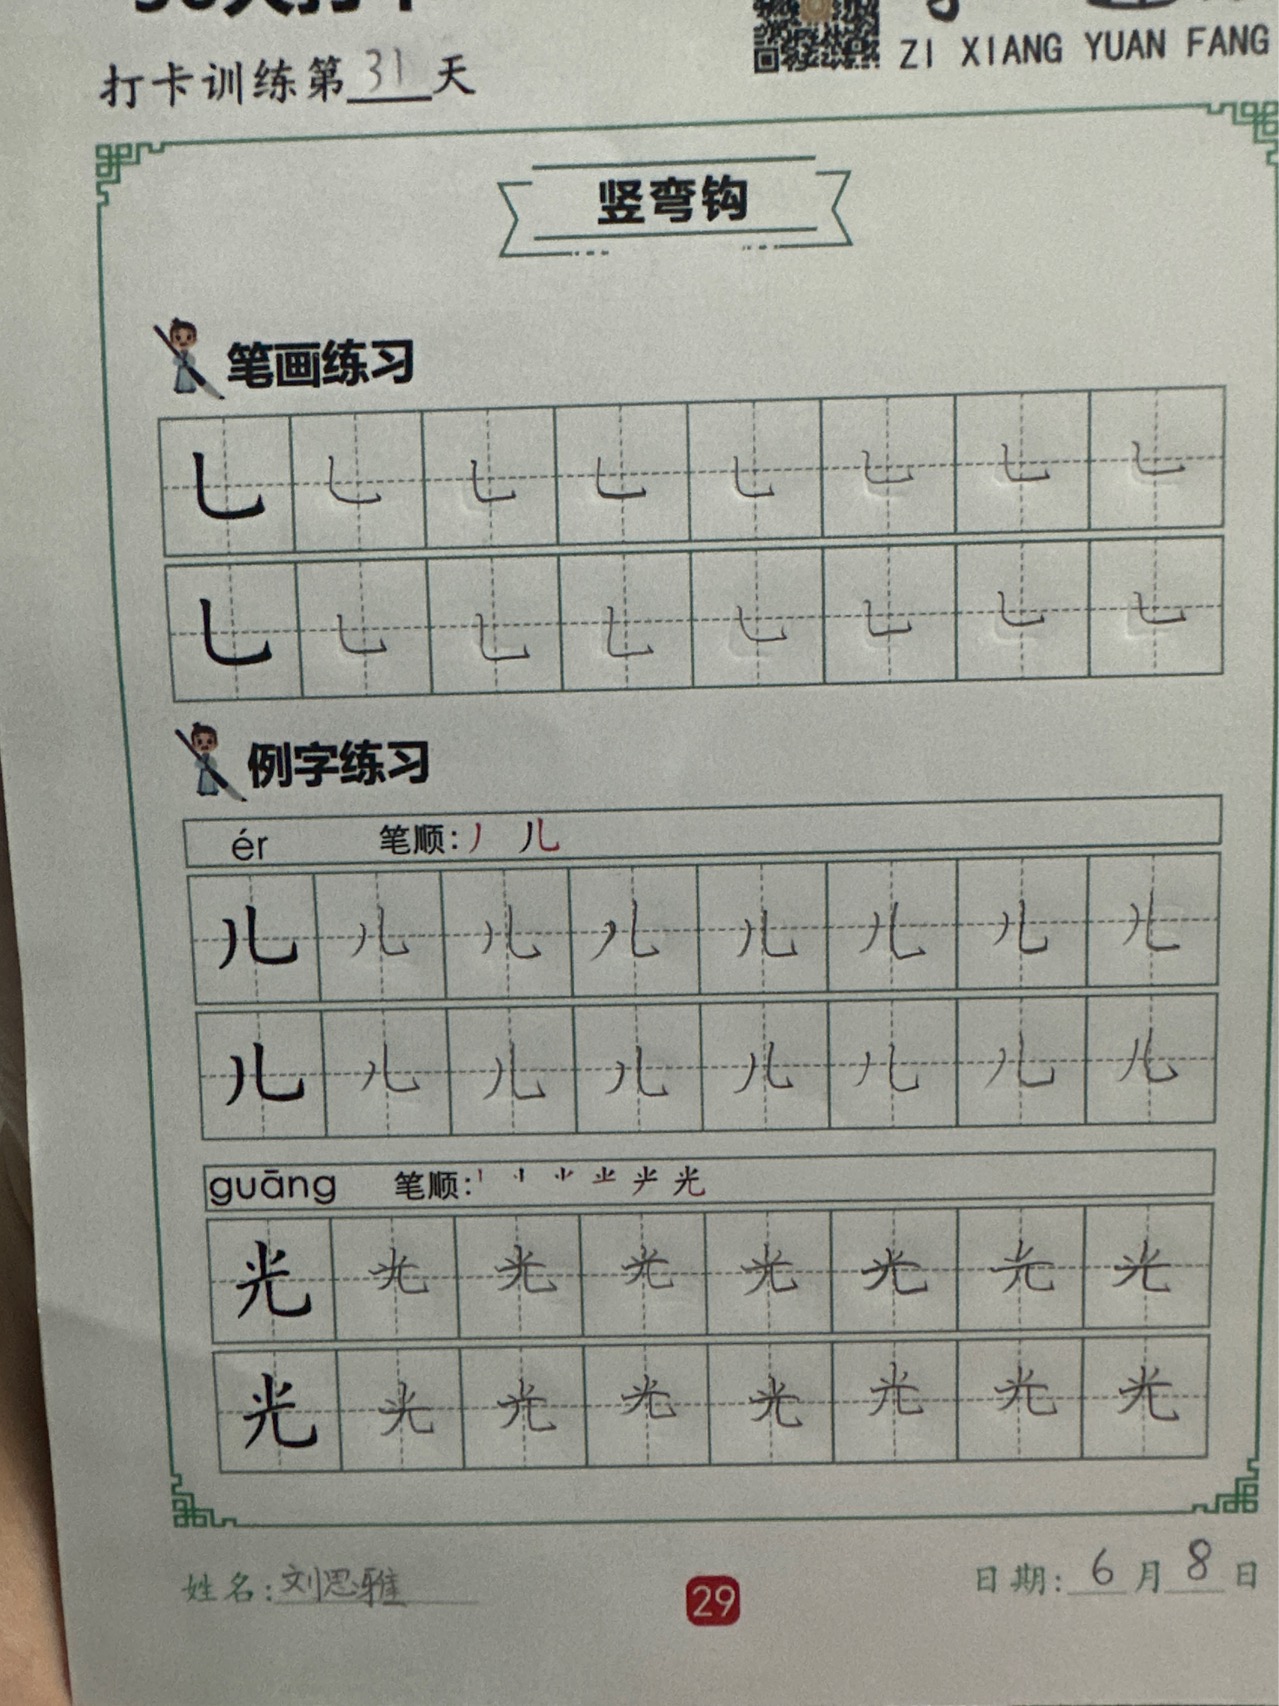 打卡训练第31天
ZI XIANG YUAN FANG
竖弯钩
笔画练习
乚 乚 乚 乚 乚 乚 乚 乚
乚 乚 乚 乚 乚 乚 乚 乚
例字练习
ér 笔顺: 丿 儿
儿 儿 儿 儿 儿 儿 儿 儿
儿 儿 儿 儿 儿 儿 儿 儿
guāng 笔顺:
光 光 光 光 光 光 光 光
光 光 光 光 光 光 光 光
姓名:刘思雅 29 日期:6月8日